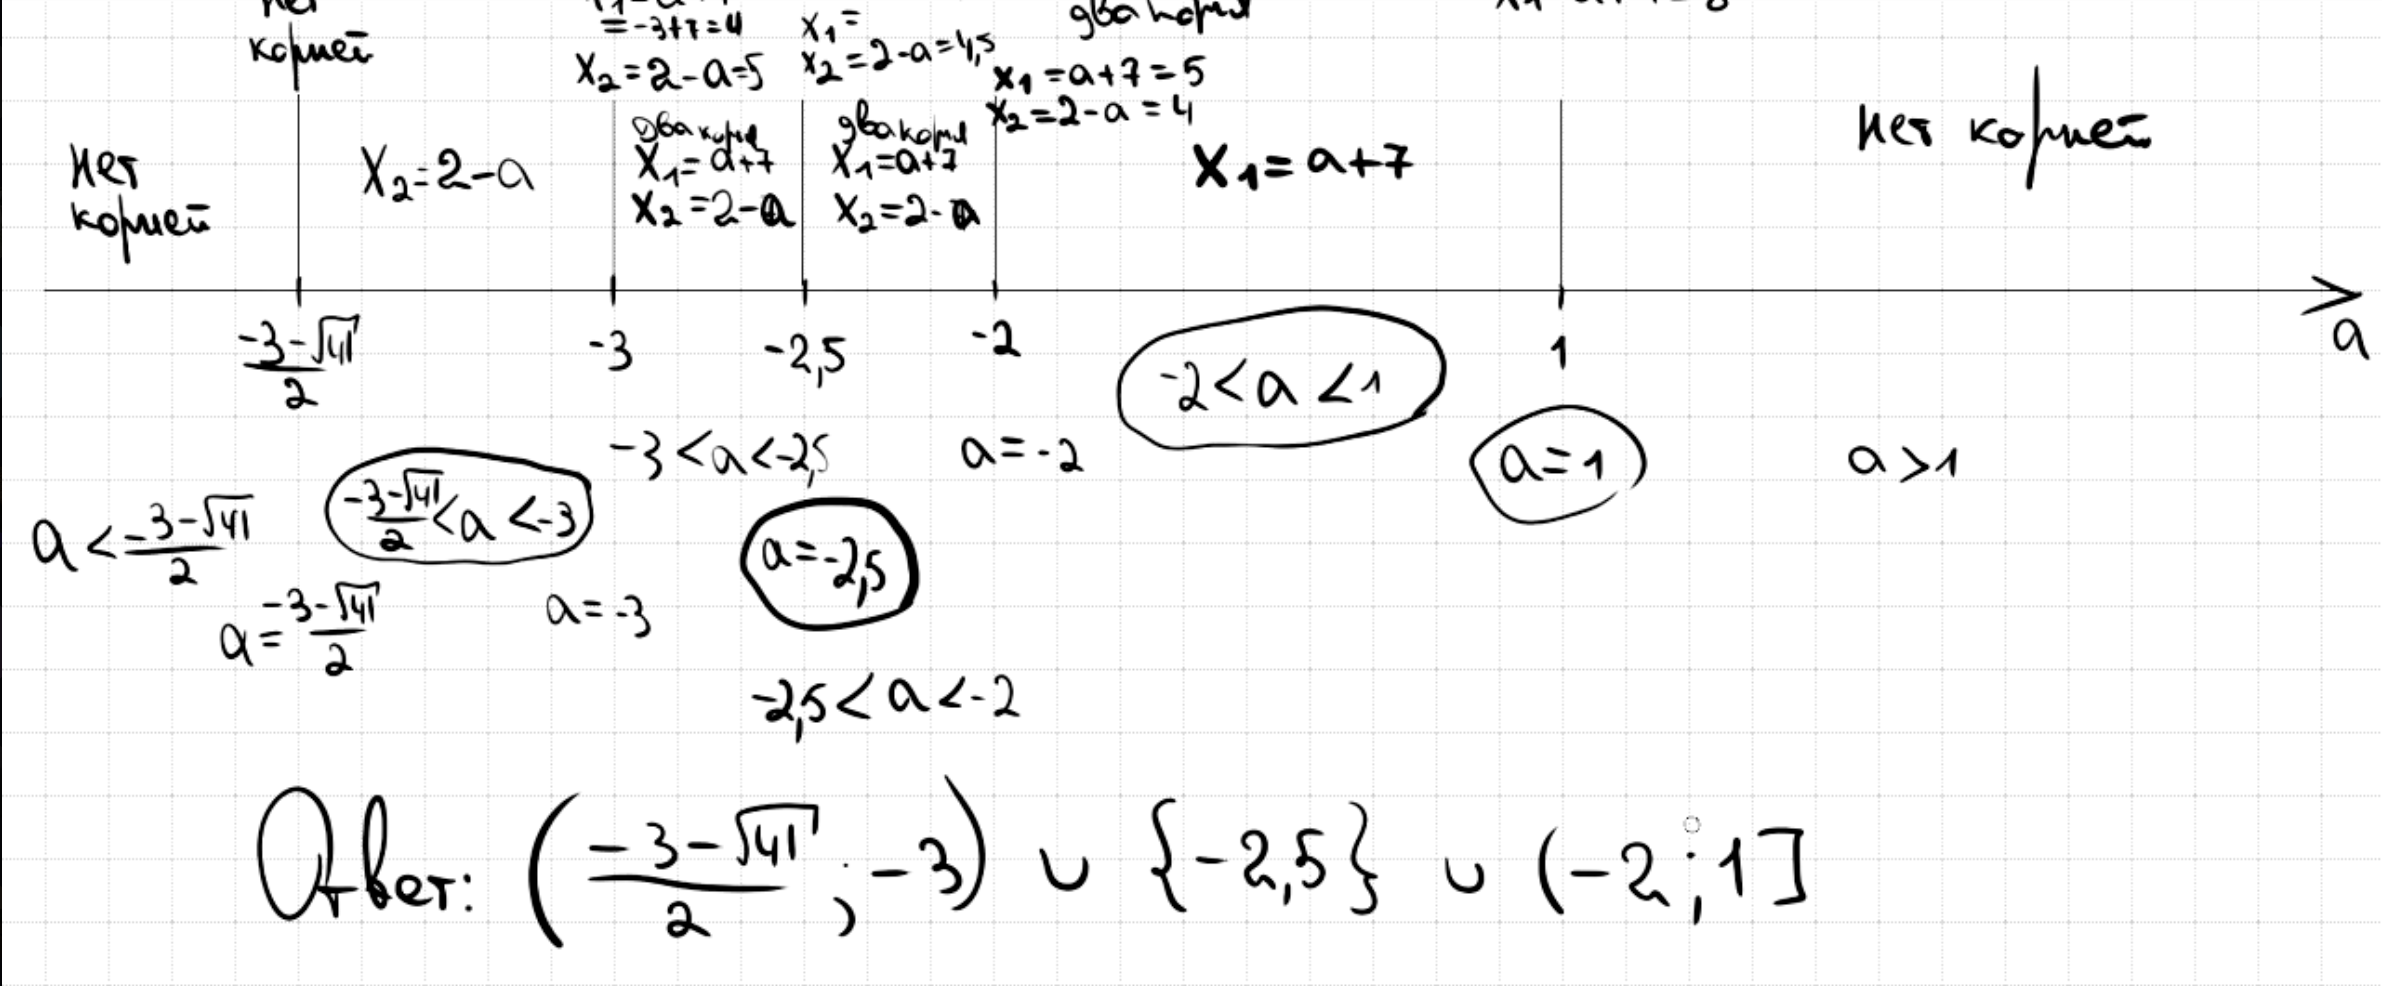 корней
= -3+7=4
x₁ =
два корня
x₂ = 2-a=5
x₂ = 2-a=4,5
x₁ = a+7 = 5
x₂ = 2-a = 4
нет
корней
x₂ = 2-a
два корня
x₁ = a+7
x₂ = 2-a
два корня
x₁ = a+7
x₂ = 2-a
x₁ = a+7
нет корней
(-3-√41)/2
-3
-2,5
-2
1
a
-2 < a < 1
-3 < a < -2,5
a = -2
a = 1
a > 1
a < (-3-√41)/2
(-3-√41)/2 < a < -3
a = -2,5
a = (-3-√41)/2
a = -3
-2,5 < a < -2
Ответ: ((-3-√41)/2 ; -3) ∪ {-2,5} ∪ (-2 ; 1]